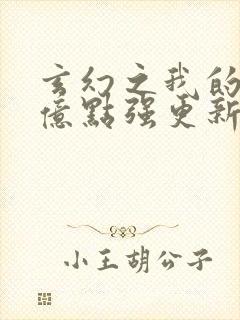 玄幻之我的
億點强更新
小王胡公子